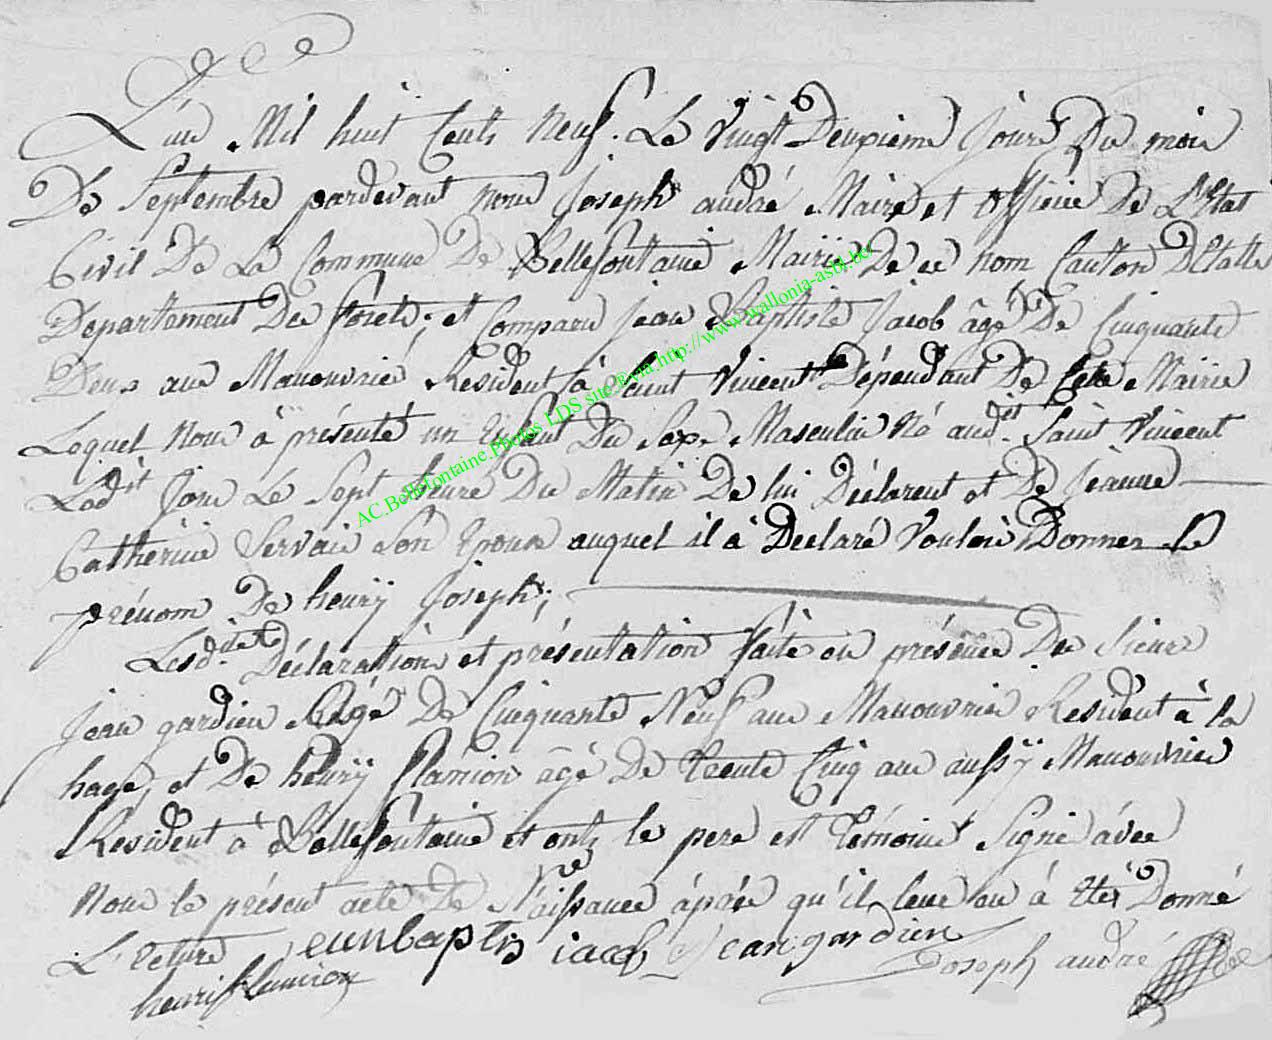 L'an Mil huit Cents Neuf. Le Vingt Deuxieme Jour Du mois
De Septembre pardevant nous Joseph andré Maire et officié De L'Etat
Civil De La Commune De Bellefontaine Mairie De ce nom Canton D'Etalle
Département Des Forets; et Comparu jean Baptiste Jacob âgé De Cinquante
Deux ans Manouvrier Resident à Saint Vincent Dépendant De Cete Mairie
Lequel nous à présenté un Enfant Du Sexe Masculin Né audit Saint Vincent
Ledit Jour Le Sept heure Du Matin De lui Déclarent et De Jeanne
Catherine Servais Son Epouse auquel il à Déclaré Vouloir Donner le
prénom De henrÿ Joseph;
Lesdites Déclaration et présentation faite en présence Des Sieurs
jean gardien Agé De Cinquante Neuf ans Manouvrier Resident à la
hage, et De henrÿ flamion âgé De trente Cinq ans aussÿ Manouvrier
Resident à Bellefontaine et onts le pere est témoins Signé àvec
Nous le présent acte De Naissance àprés qu'il leur en à Eté Donné
L'Ecture jeunbaptis iacob Jean gardien Joseph andré
henri flamion
AC.Bellefontaine.Photos LDS site® via http://www.wallonia-asbl.be/